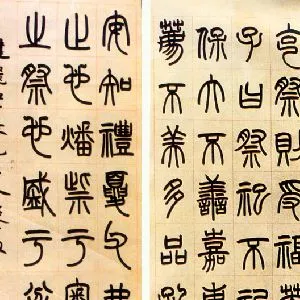 克祭則受福
子曰祭祀不
保大不善嘉事
薦不美多品
安知禮夏父弗
止也燔柴于奧
之祭也盛于